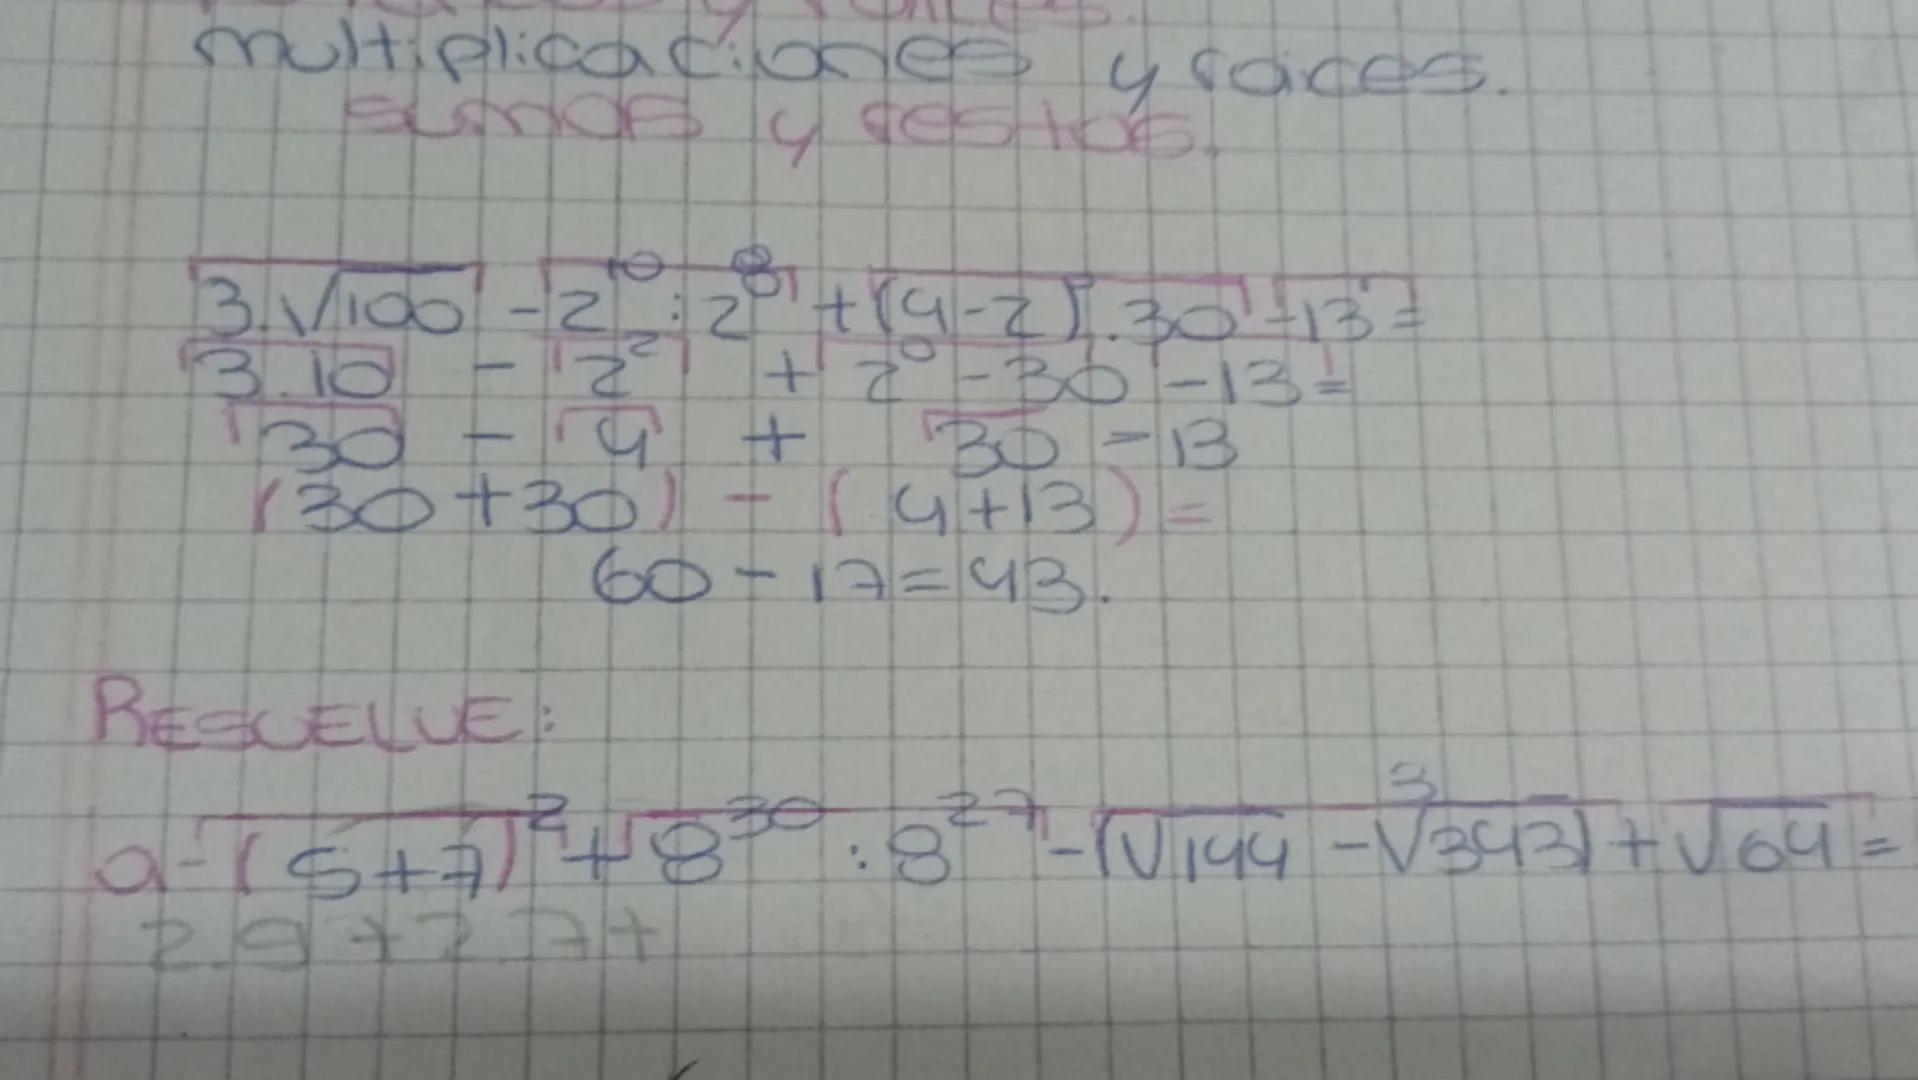 y raíces.
multiplicaciones y raíces.
sumas y restas.
3.√100 - 2¹⁰ : 2⁸ + (4-2)⁰.30 - 13 =
3.10 - 2² + 2⁰ - 30 - 13 =
30 - 4 + 30 - 13
(30+30) - (4+13) =
60 - 17 = 43.
RESUELVE:
a- (5+7)² + 8³⁰ : 8²⁷ - (√144 - ³√343) + √64 =
2.9+2.7+